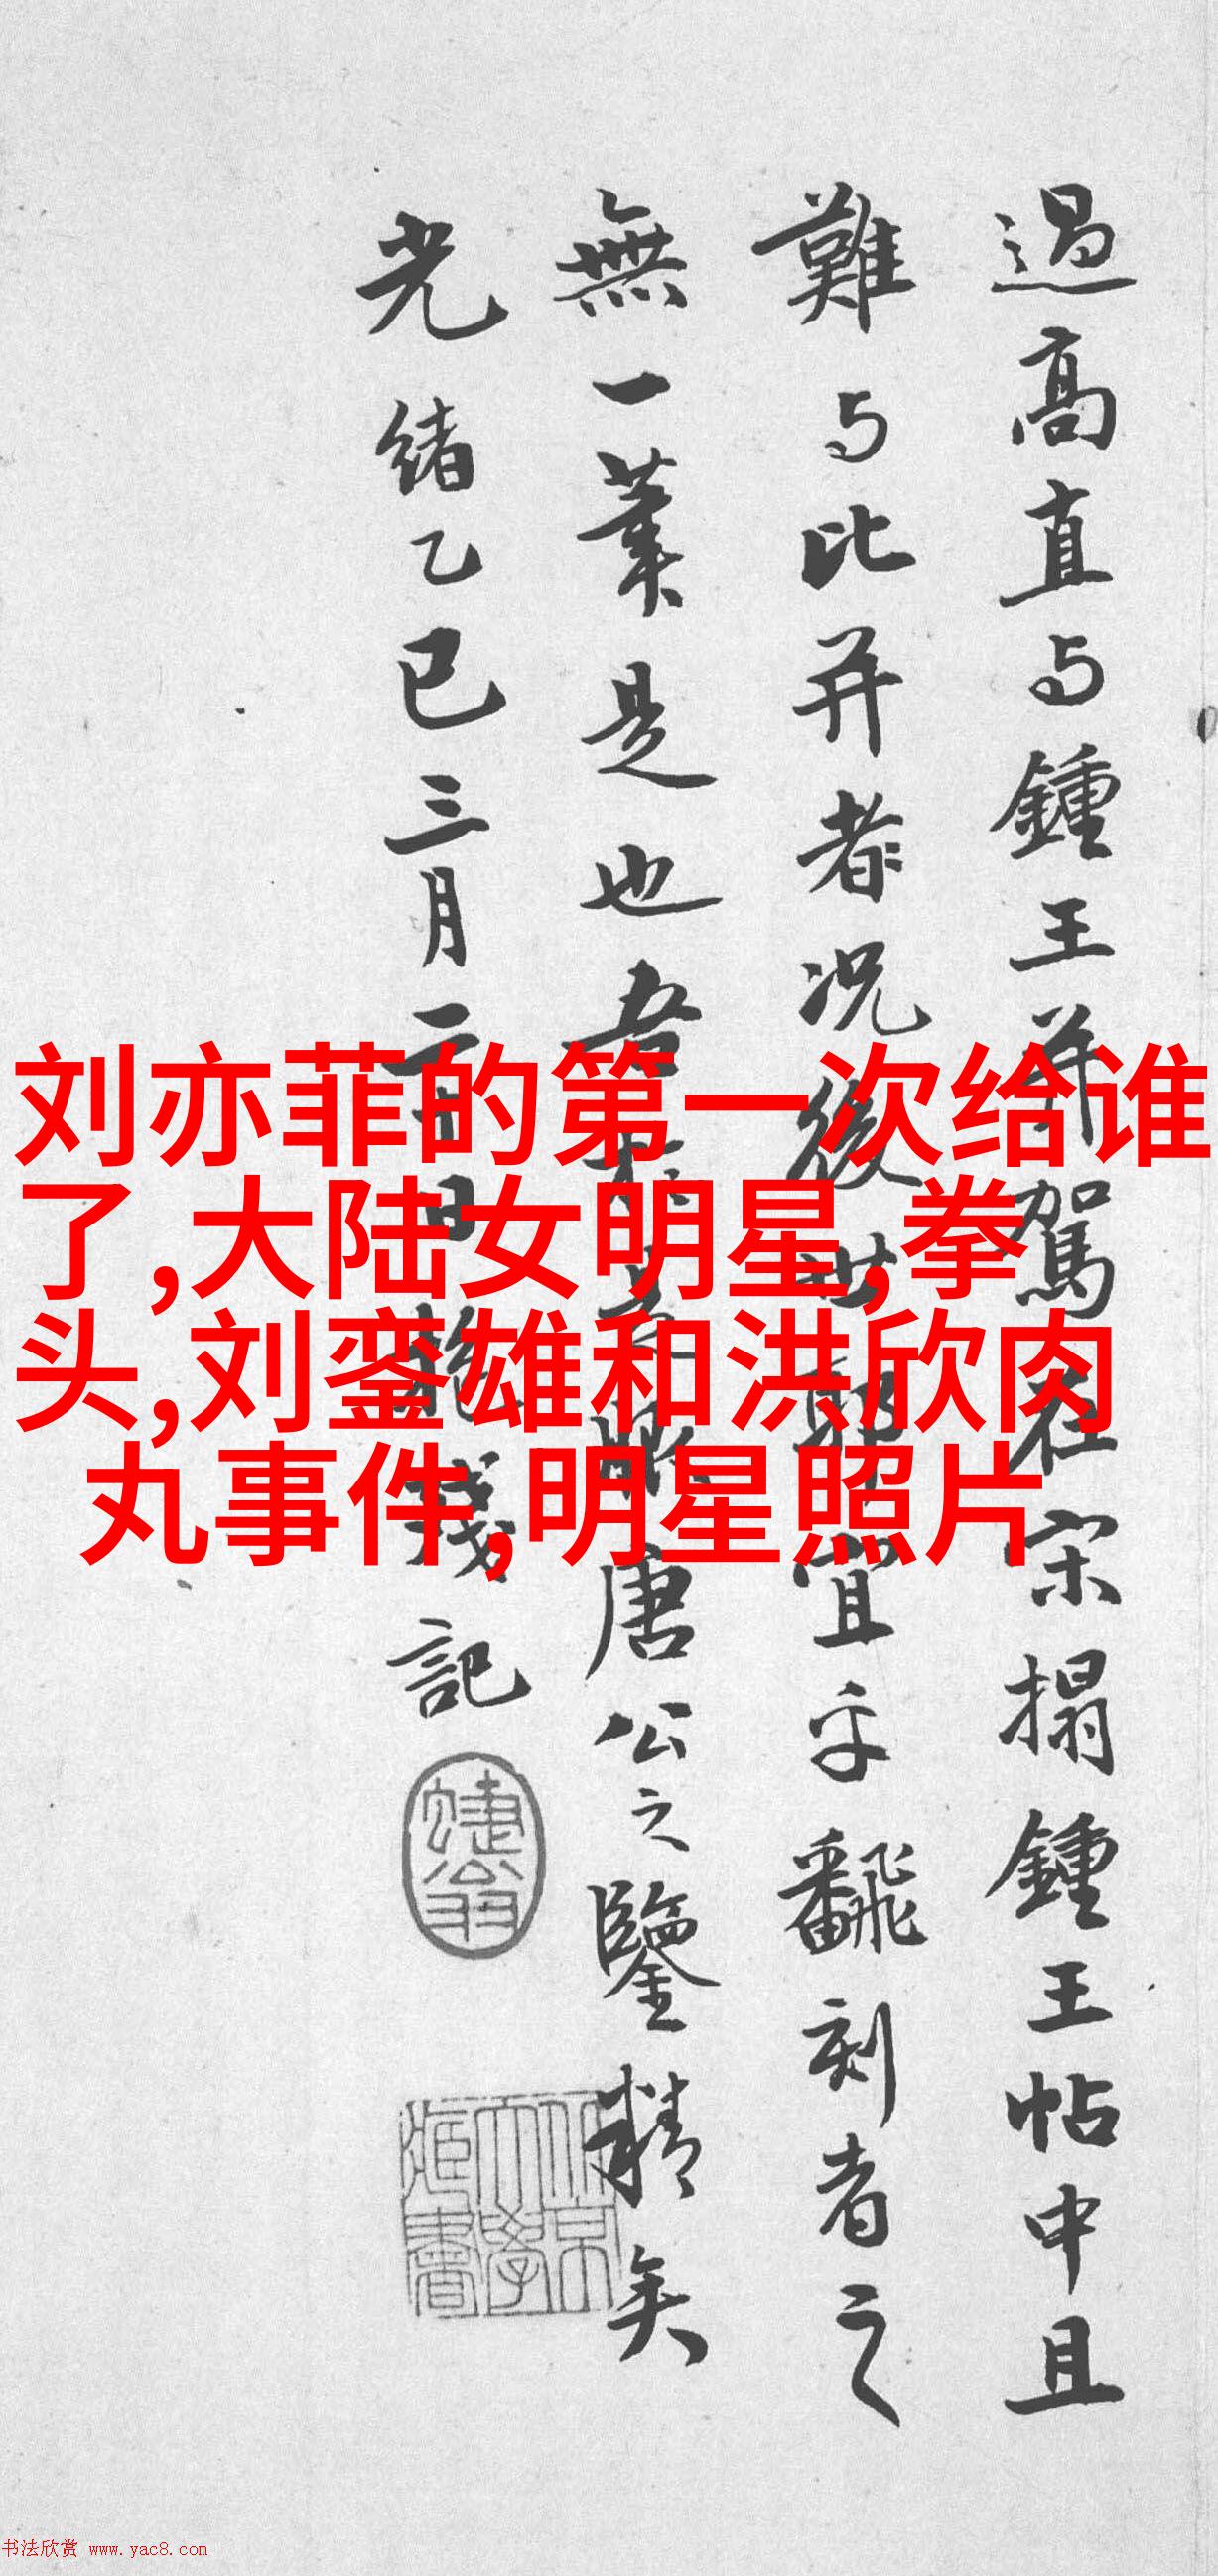 過高直与鍾王并駕在宋搨鍾王帖中且
難与比并者況後世郭宜乎飜刻者之
無一筆是也者唐公之鑒精矣
光緒乙巳三月二日記
刘亦菲的第一次给谁
了,大陆女明星,拳
头,刘銮雄和洪欣肉
丸事件,明星照片
书法欣赏 www.yac8.com